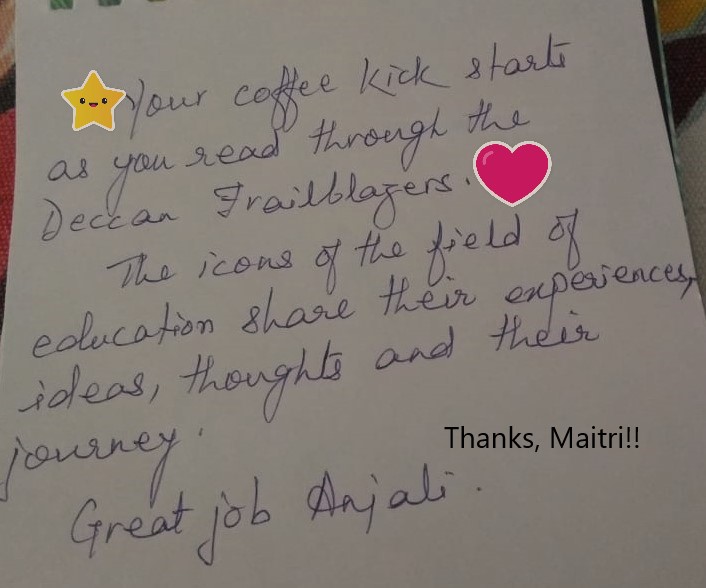 Your coffee kick starts
as you read through the
Deccan Trailblazers.
The icons of the field of
education share their experiences,
ideas, thoughts and their
journey.
Thanks, Maitri!!
Great job Anjali.